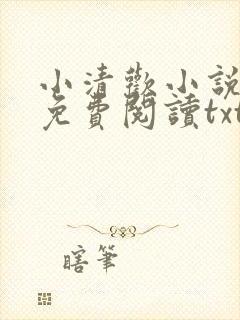 小清歡小說
免費閱讀txt
瞎筆